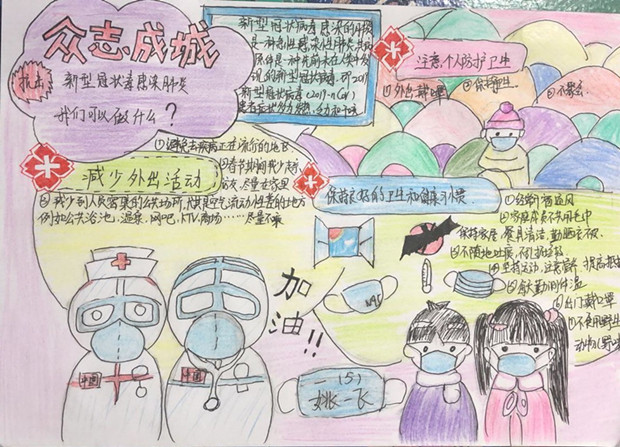 众志成城
抗击
新型冠状毒感染肺炎
我们可以在什么？
新型冠状病毒感染的肺炎
是一种急性感染性肺炎,其
原体是一种先前未在人类中发
现的新型冠状病毒,即2019
新型冠状病毒(2019-nCoV)
注意个人防护卫生
①外出戴口罩
①避免去疾病正在流行的地区
②春节期间减少走亲
访友,尽量在家里
减少外出活动
③减少到人员密集的公共场所,
例如公共浴池、温泉、网吧、KTV、商场……尽量不
保持良好的卫生和健康习惯
①经常开窗通风
②家庭成员不共用毛巾
保持家居、餐具清洁,勤晒衣被
③不随地吐痰,
⑥出门戴口罩
⑦不食用野生
动物(野味)
加油!!
N95
中国
中国
一(5)
姚一飞